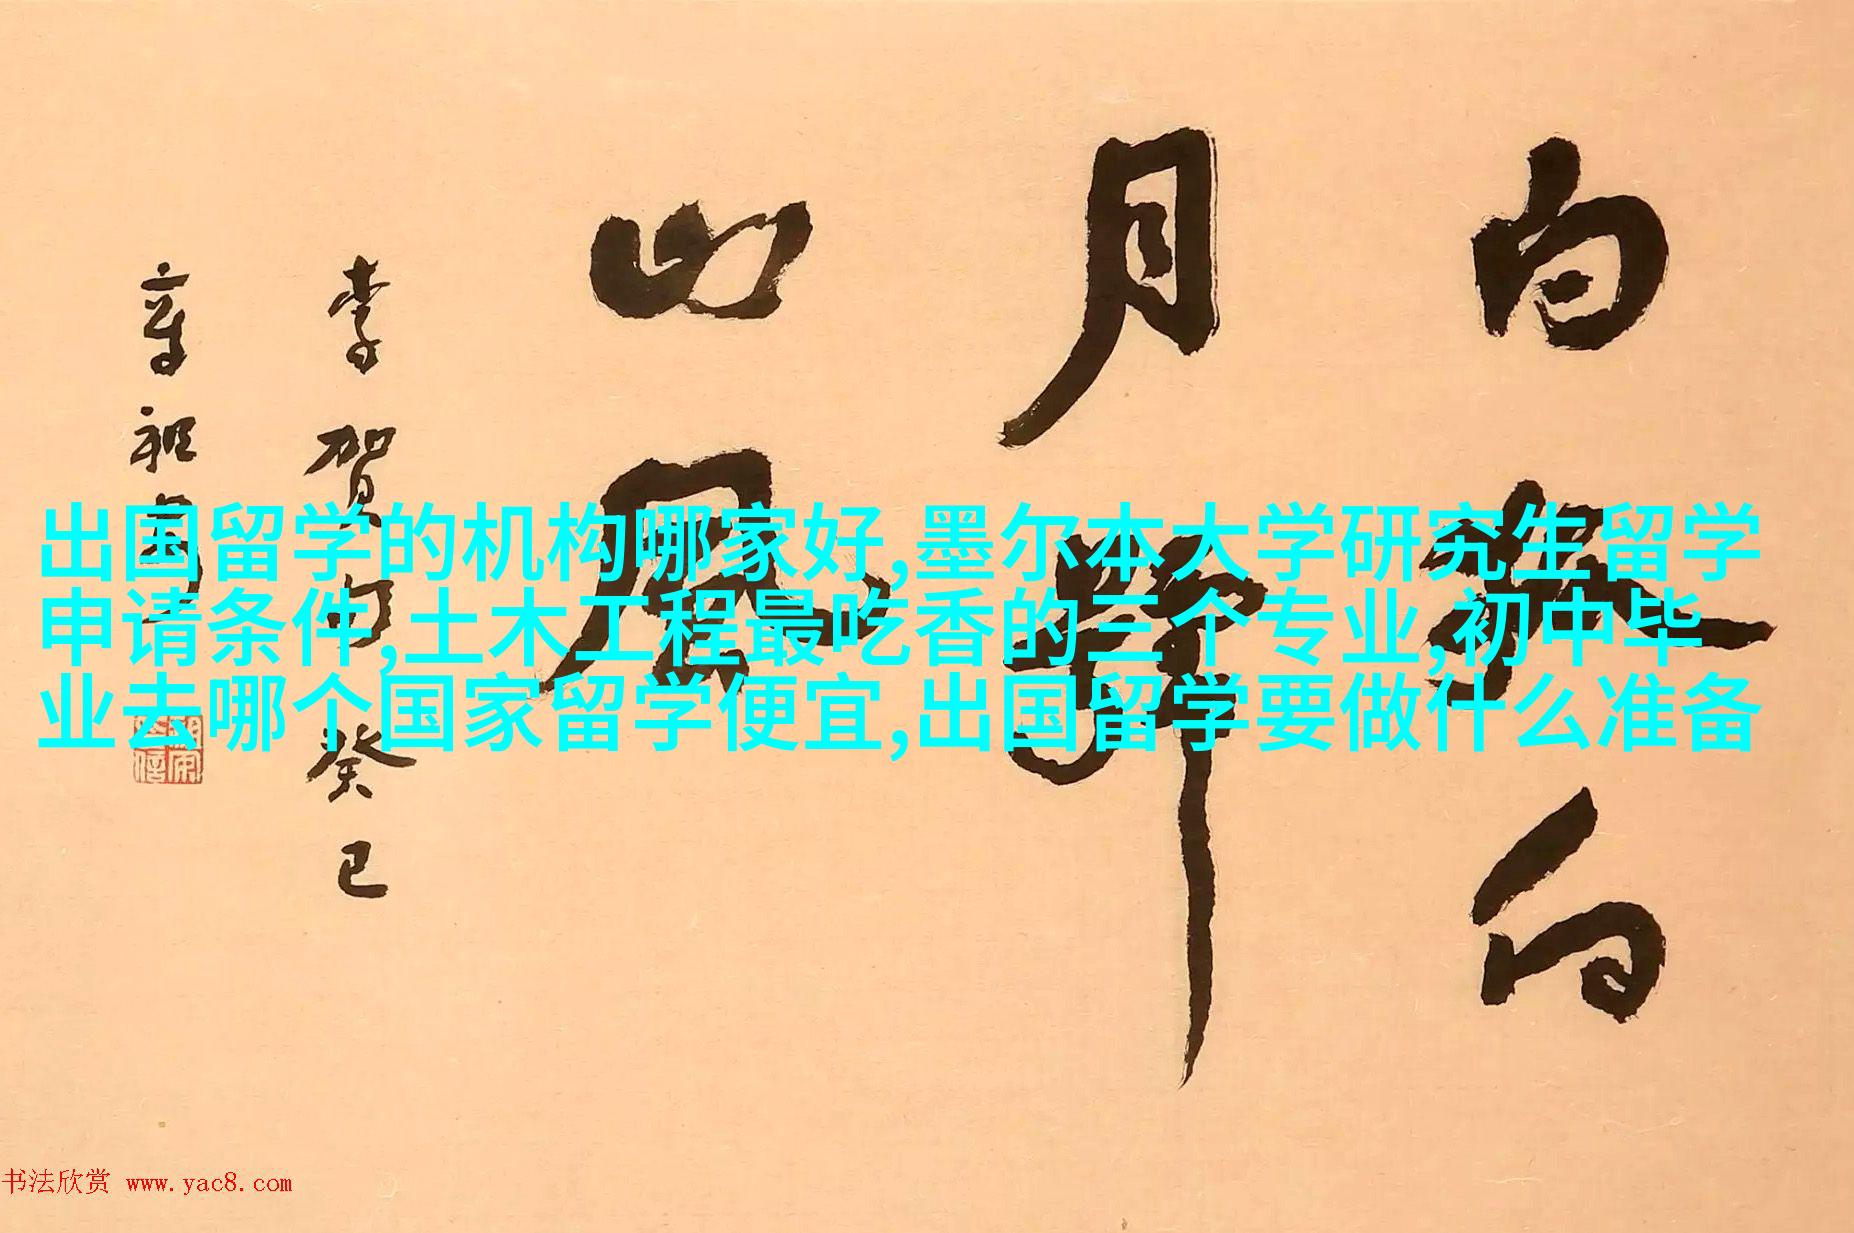 白狐向
月號
山風
李賀句癸巳
章祖安
出国留学的机构哪家好,墨尔本大学研究生留学
申请条件,土木工程最吃香的三个专业,初中毕
业去哪个国家留学便宜,出国留学要做什么准备
书法欣赏 www.yac8.com